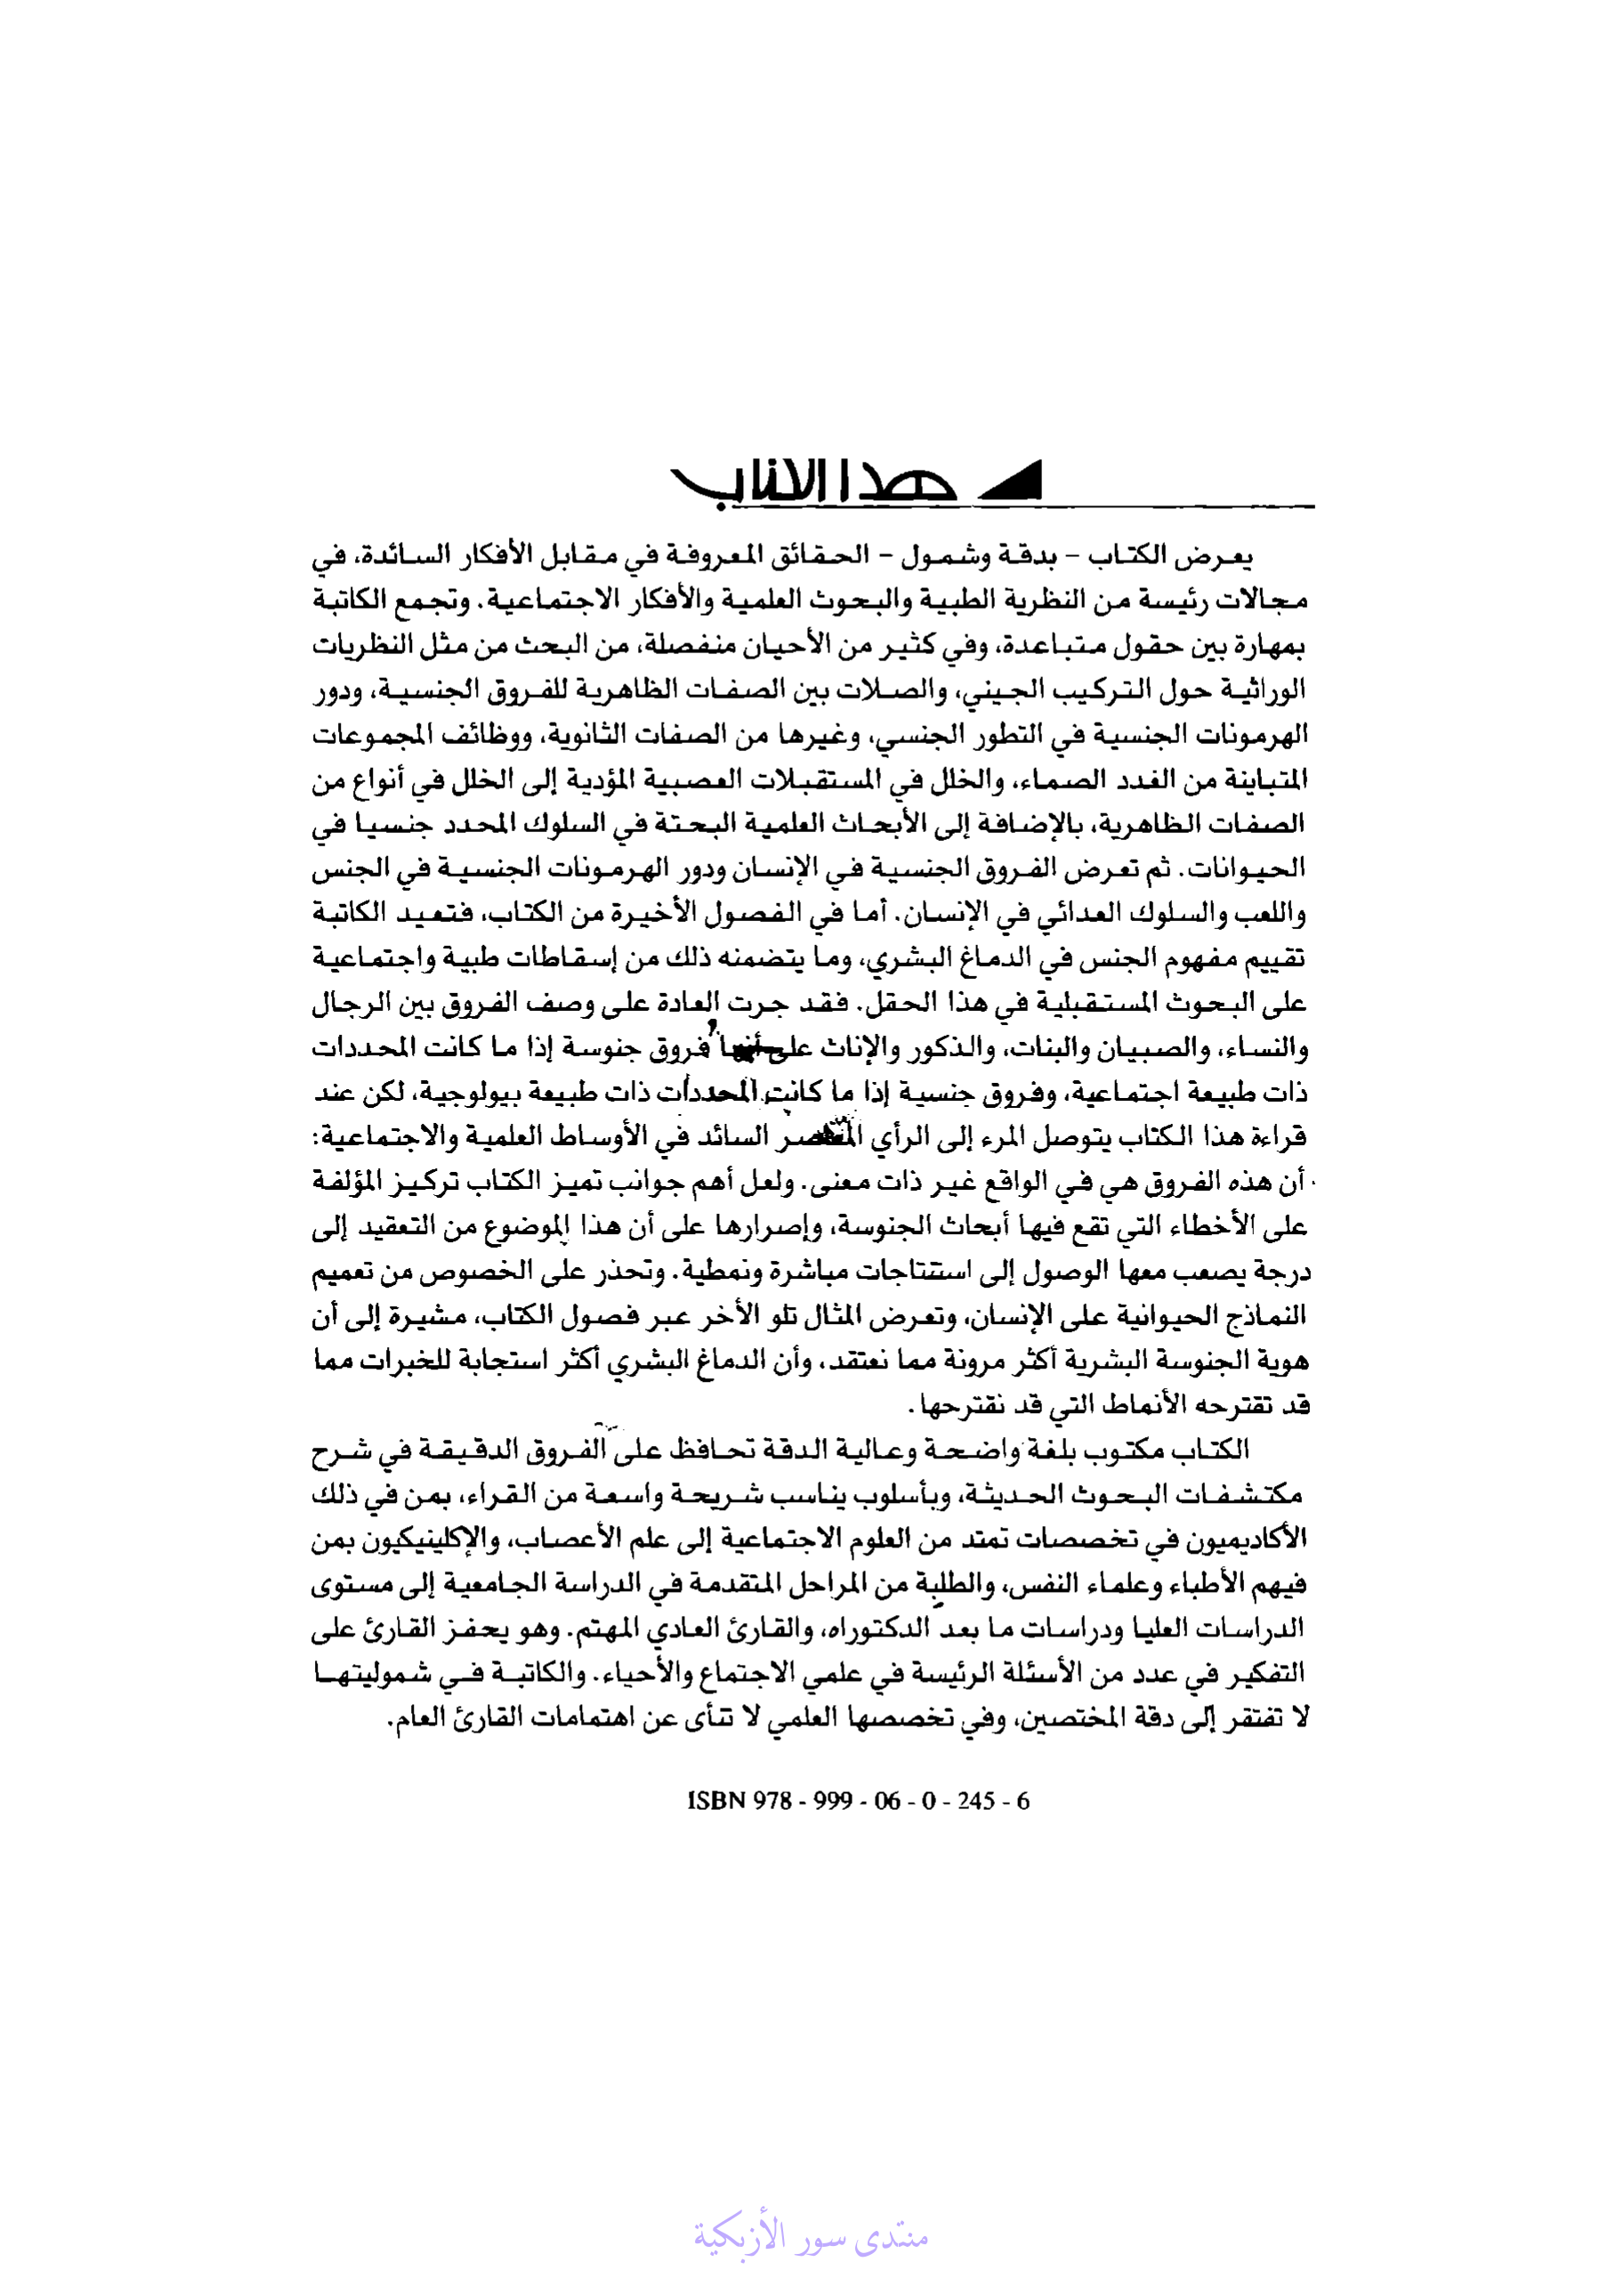 هذا الكتاب
يعرض الكتاب - بدقة وشمول - الحقائق المعروفة في مقابل الأفكار السائدة، في
مجالات رئيسة من النظرية الطبية والبحوث العلمية والأفكار الاجتماعية. وتجمع الكاتبة
بمهارة بين حقول متباعدة، وفي كثير من الأحيان منفصلة، من البحث من مثل النظريات
الوراثية حول التركيب الجيني، والصلات بين الصفات الظاهرية للفروق الجنسية، ودور
الهرمونات الجنسية في التطور الجنسي، وغيرها من الصفات الثانوية، ووظائف المجموعات
المتباينة من الغدد الصماء، والخلل في المستقبلات العصبية المؤدية إلى الخلل في أنواع من
الصفات الظاهرية، بالإضافة إلى الأبحاث العلمية البحتة في السلوك المحدد جنسيا في
الحيوانات. ثم تعرض الفروق الجنسية في الإنسان ودور الهرمونات الجنسية في الجنس
واللعب والسلوك العدائي في الإنسان. أما في الفصول الأخيرة من الكتاب، فتعيد الكاتبة
تقييم مفهوم الجنس في الدماغ البشري، وما يتضمنه ذلك من إسقاطات طبية واجتماعية
على البحوث المستقبلية في هذا الحقل. فقد جرت العادة على وصف الفروق بين الرجال
والنساء، والصبيان والبنات، والذكور والإناث على أنها فروق جنوسة إذا ما كانت المحددات
ذات طبيعة اجتماعية، وفروق جنسية إذا ما كانت المحددات ذات طبيعة بيولوجية، لكن عند
قراءة هذا الكتاب يتوصل المرء إلى الرأي السائد في الأوساط العلمية والاجتماعية:
أن هذه الفروق هي في الواقع غير ذات معنى. ولعل أهم جوانب تميز الكتاب تركيز المؤلفة
على الأخطاء التي تقع فيها أبحاث الجنوسة، وإصرارها على أن هذا الموضوع من التعقيد إلى
درجة يصعب معها الوصول إلى استنتاجات مباشرة ونمطية. وتحذر على الخصوص من تعميم
النماذج الحيوانية على الإنسان، وتعرض المثال تلو الأخر عبر فصول الكتاب، مشيرة إلى أن
هوية الجنوسة البشرية أكثر مرونة مما نعتقد، وأن الدماغ البشري أكثر استجابة للخبرات مما
قد تقترحه الأنماط التي قد نقترحها.
الكتاب مكتوب بلغة واضحة وعالية الدقة تحافظ على الفروق الدقيقة في شرح
مكتشفات البحوث الحديثة، وبأسلوب يناسب شريحة واسعة من القراء، بمن في ذلك
الأكاديميون في تخصصات تمتد من العلوم الاجتماعية إلى علم الأعصاب، والإكلينيكيون بمن
فيهم الأطباء وعلماء النفس، والطلبة من المراحل المتقدمة في الدراسة الجامعية إلى مستوى
الدراسات العليا ودراسات ما بعد الدكتوراه، والقارئ العادي المهتم. وهو يحفز القارئ على
التفكير في عدد من الأسئلة الرئيسة في علمي الاجتماع والأحياء. والكاتبة في شموليتها
لا تفتقر إلى دقة المختصين، وفي تخصصها العلمي لا تنأى عن اهتمامات القارئ العام.
ISBN 978 - 999 - 06 - 0 - 245 - 6
منتدى سور الأزبكية